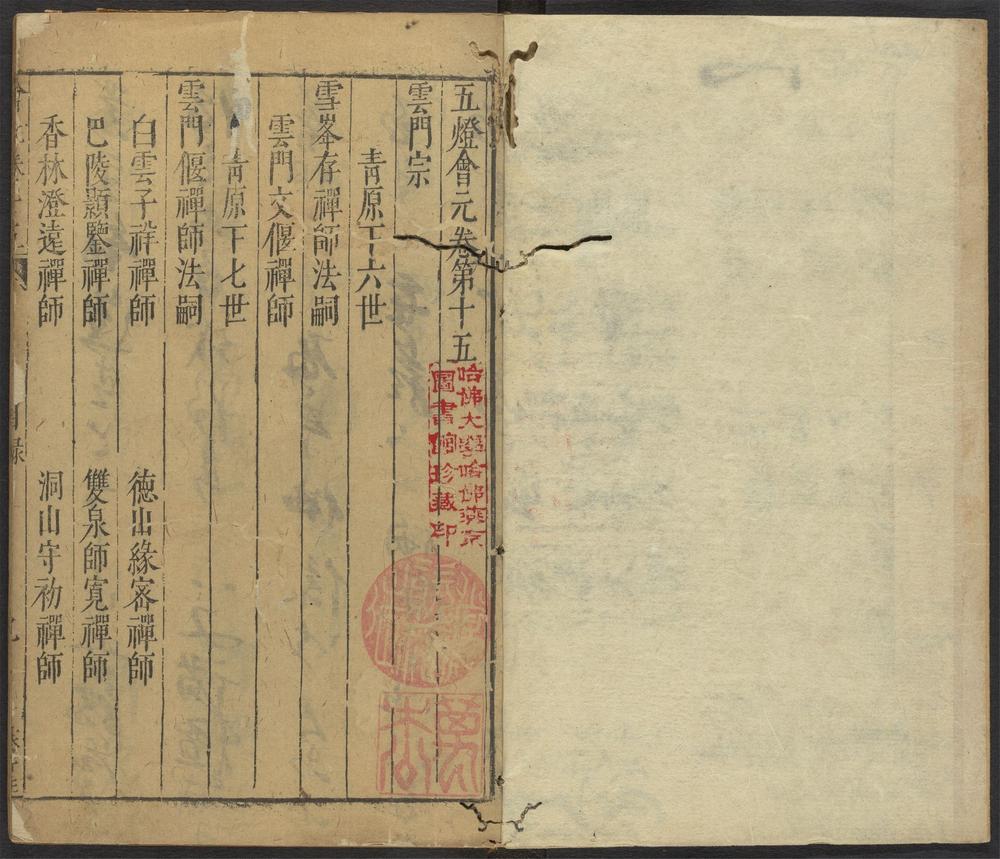 五燈會元卷第十五
雲門宗
青原下六世
雪峯存禪師法嗣
雲門文偃禪師
青原下七世
雲門偃禪師法嗣
白雲子祥禪師
德山緣密禪師
巴陵顥鑒禪師
雙泉師寬禪師
香林澄遠禪師
洞山守初禪師
哈佛大學哈佛燕京
圖書館珍藏印
目錄